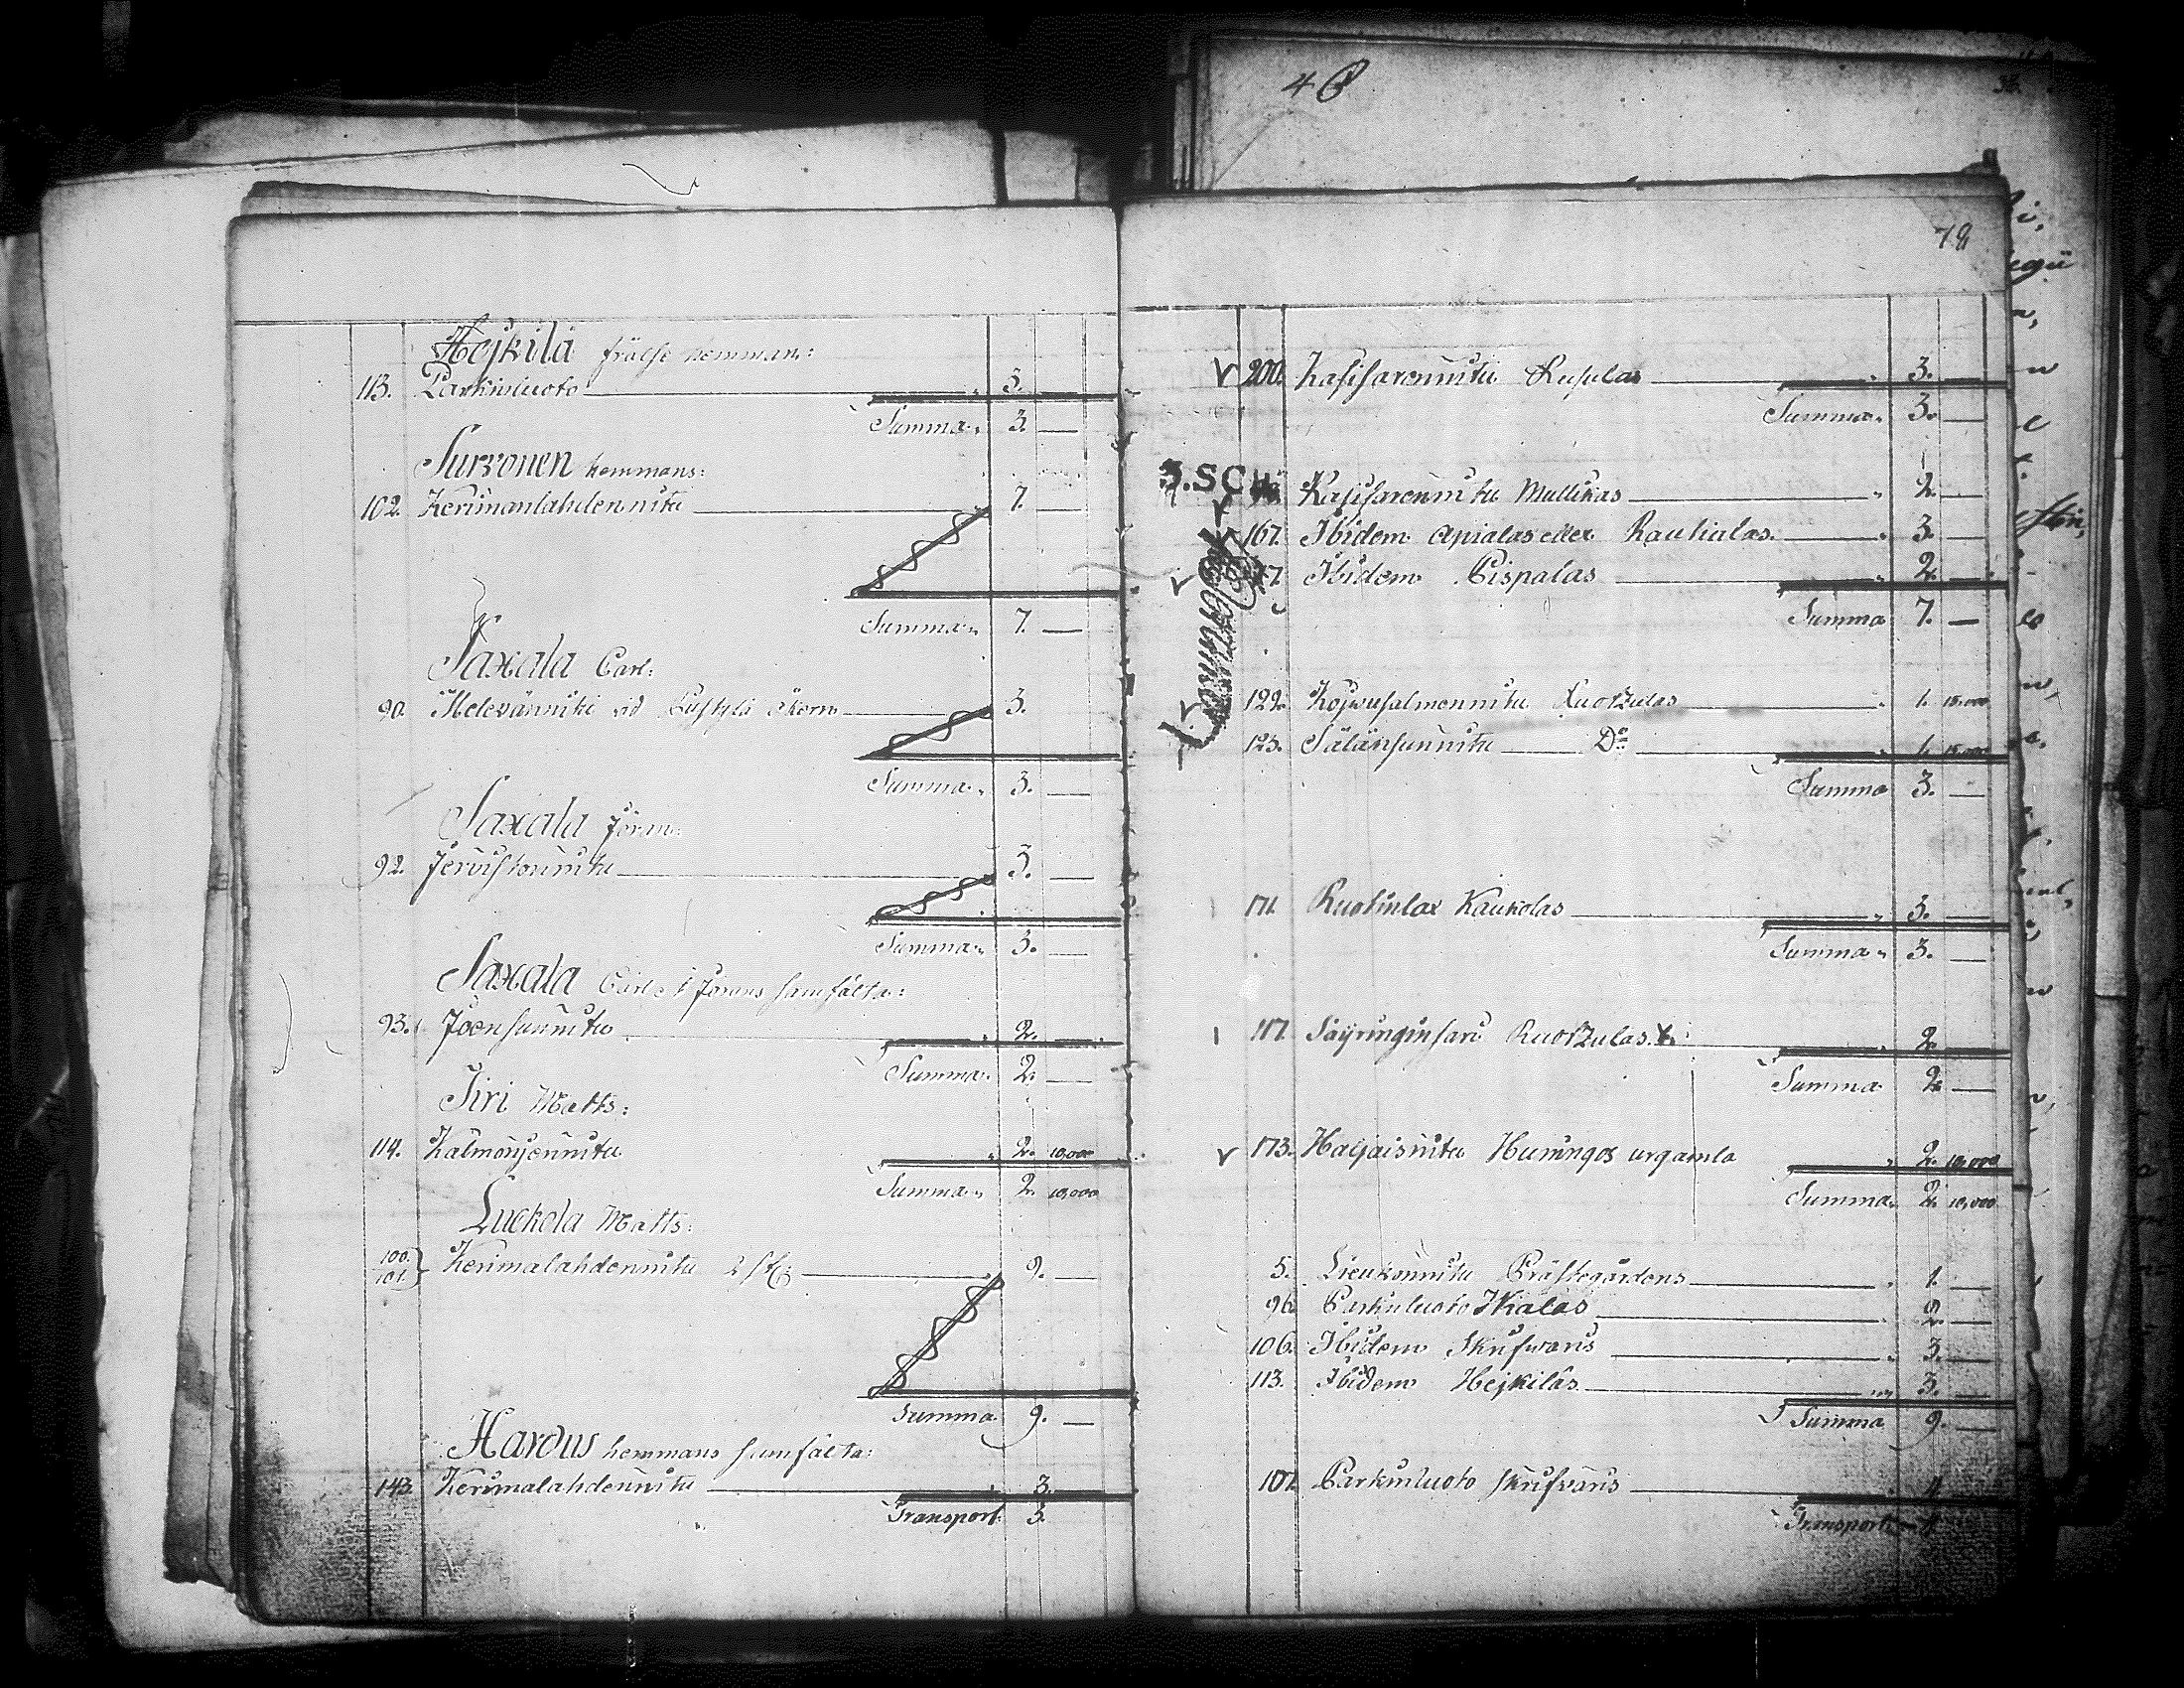 46
78
Hejkilä frälse hemman:
113. Parkinluoto 3. —
Summa 3. —
Surronen hemmans:
102. Kerimanlahdennitu 7. —
Summa 7. —
Saxala Carl:
90. Melevänniki vid Åkern 3.
Summa 3. —
Saxala Jöran:
92. 3. —
Summa 3. —
Saxala Carls & Jörans samfälta:
93. Joensunnitu 2. —
Summa 2. —
Siri Matts:
114. Kalmonjennitu 2. 10,000
Summa 2. 10,000
Luckola Matts:
100. 101. } Kerimalahdennitu 2 st: 9. —
Summa 9. —
Hardus hemmans samfälta:
143. Kerimalahdennitu 3.
Transport 3.
200. Kasisarennitu Rusulas 3. —
Summa 3. —
Kasisarennitu Mullikas 2. —
167. Ibidem Apialas eller Rautialas 3. —
Ibidem Pispalas 2. —
Summa 7. —
122. Kojvusalmennitu Ruotzulas 1. 15,000
123. Sälänsunnitu Do 1. 15,000
Summa 3. —
171. Ruotinlax Kaukolas 3. —
Summa 3. —
117. Säyringinsari Ruotzulas 2. —
Summa 2. —
173. Haljaisnitu Humingos urgamla 2. 10,000
Summa 2. 10,000
5. Lieukonnitu Prästegårdens 1. —
96. Parkinluoto Ikialas 2. —
106. Ibidem Skrifwars 3. —
113. Ibidem Hejkiläs 3. —
Summa 9. —
107. Parkinluoto Skrifvars 4.
Transport 4.